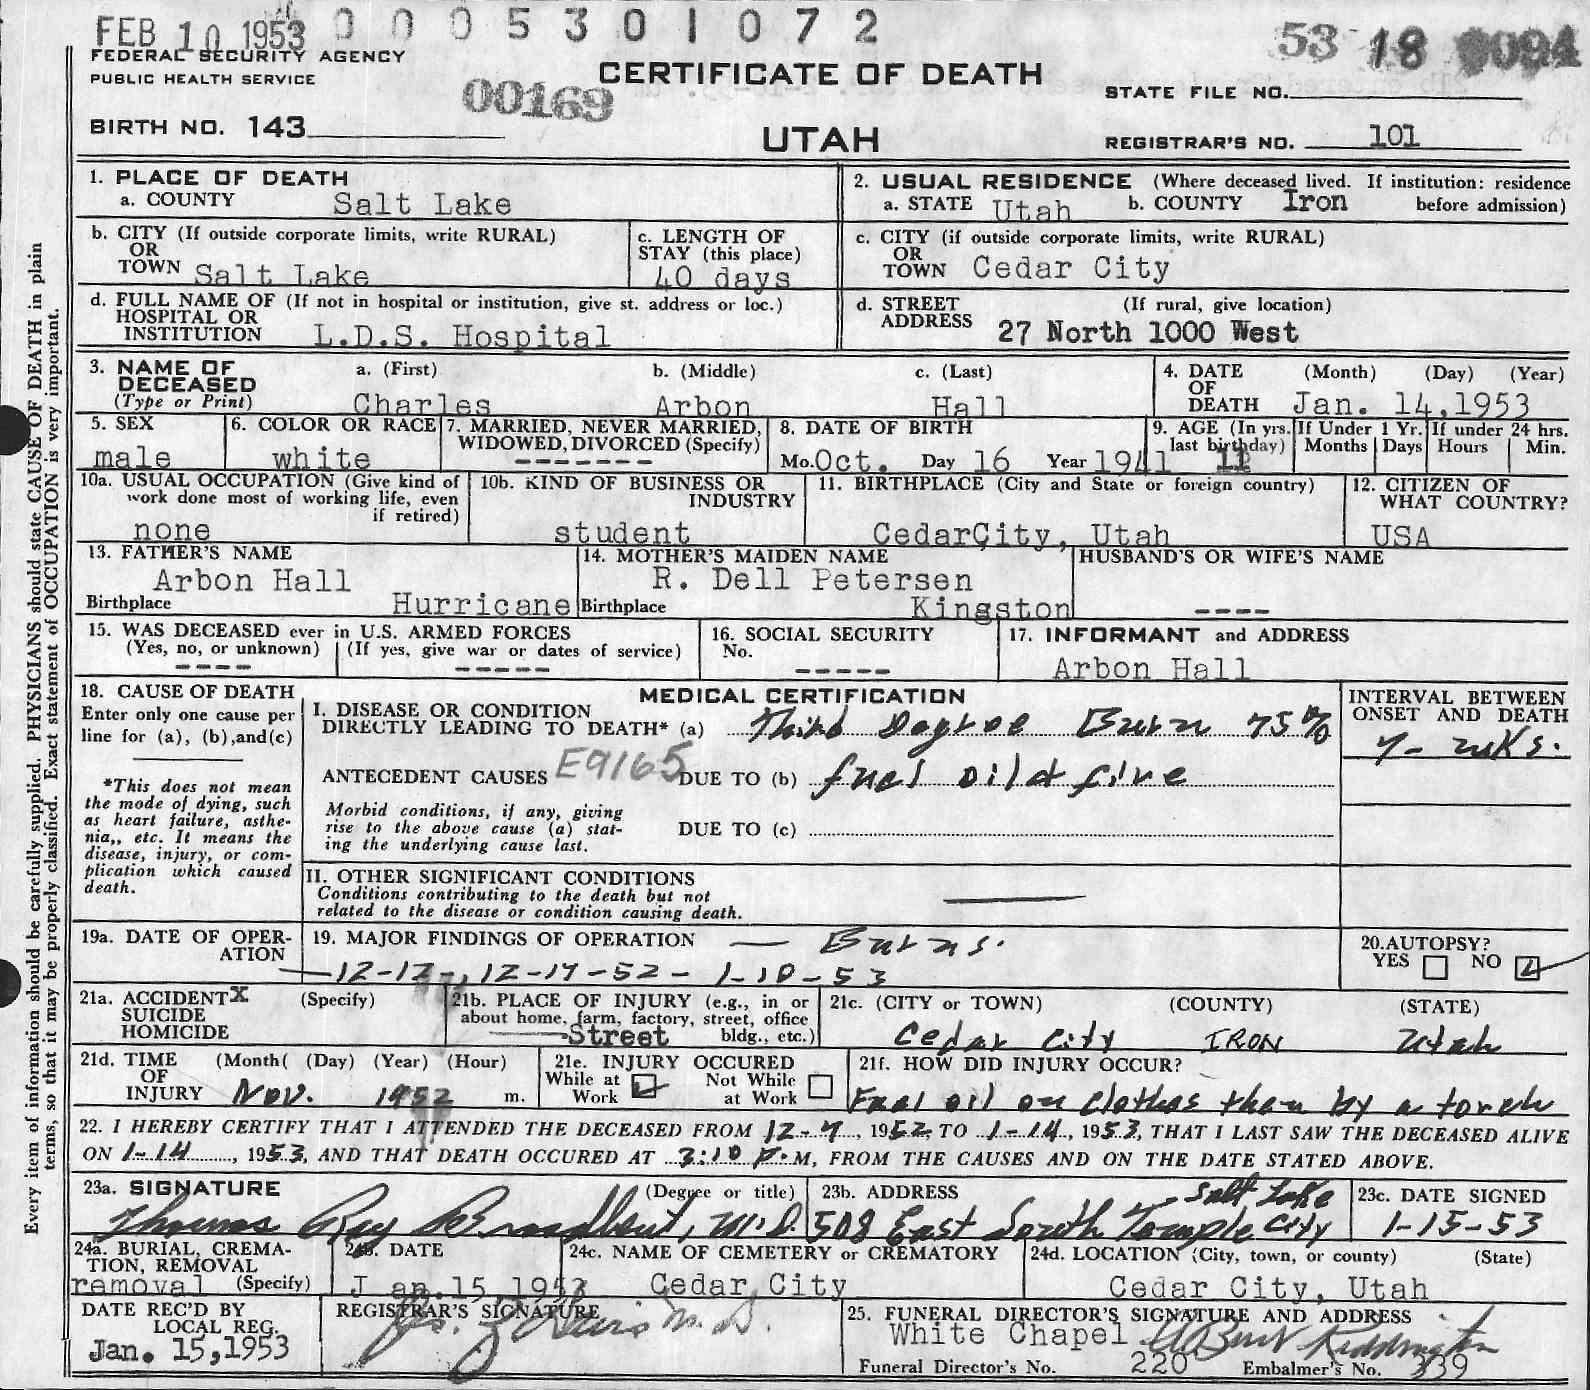 FEB 10 1953 0005301072 53 18 0094
FEDERAL SECURITY AGENCY
PUBLIC HEALTH SERVICE
CERTIFICATE OF DEATH
00169
STATE FILE NO.
BIRTH NO. 143
UTAH
REGISTRAR'S NO. 101
1. PLACE OF DEATH
a. COUNTY Salt Lake
2. USUAL RESIDENCE (Where deceased lived. If institution: residence before admission)
a. STATE Utah b. COUNTY Iron
b. CITY (If outside corporate limits, write RURAL)
OR
TOWN Salt Lake
c. LENGTH OF
STAY (this place)
40 days
c. CITY (if outside corporate limits, write RURAL)
OR
TOWN Cedar City
d. FULL NAME OF (If not in hospital or institution, give st. address or loc.)
HOSPITAL OR
INSTITUTION L.D.S. Hospital
d. STREET (If rural, give location)
ADDRESS 27 North 1000 West
3. NAME OF
DECEASED
(Type or Print)
a. (First) b. (Middle) c. (Last)
Charles Arbon Hall
4. DATE (Month) (Day) (Year)
OF
DEATH Jan. 14,1953
5. SEX
male
6. COLOR OR RACE
white
7. MARRIED, NEVER MARRIED,
WIDOWED, DIVORCED (Specify)
-------
8. DATE OF BIRTH
Mo. Oct. Day 16 Year 1941
9. AGE (In yrs.
last birthday) 11
If Under 1 Yr.
Months Days
If under 24 hrs.
Hours Min.
10a. USUAL OCCUPATION (Give kind of
work done most of working life, even
if retired)
none
10b. KIND OF BUSINESS OR
INDUSTRY
student
11. BIRTHPLACE (City and State or foreign country)
CedarCity, Utah
12. CITIZEN OF
WHAT COUNTRY?
USA
13. FATHER'S NAME
Arbon Hall
Birthplace Hurricane
14. MOTHER'S MAIDEN NAME
R. Dell Petersen
Birthplace Kingston
HUSBAND'S OR WIFE'S NAME
----
15. WAS DECEASED ever in U.S. ARMED FORCES
(Yes, no, or unknown) (If yes, give war or dates of service)
---- -----
16. SOCIAL SECURITY
No.
-----
17. INFORMANT and ADDRESS
Arbon Hall
18. CAUSE OF DEATH
Enter only one cause per
line for (a), (b),and(c)
*This does not mean
the mode of dying, such
as heart failure, asthe-
nia,, etc. It means the
disease, injury, or com-
plication which caused
death.
MEDICAL CERTIFICATION
I. DISEASE OR CONDITION
DIRECTLY LEADING TO DEATH* (a) Third Degree Burn 75%
ANTECEDENT CAUSES E9165 DUE TO (b) fuel oild fire
Morbid conditions, if any, giving
rise to the above cause (a) stat-
ing the underlying cause last.
DUE TO (c)
INTERVAL BETWEEN
ONSET AND DEATH
7- wks.
II. OTHER SIGNIFICANT CONDITIONS
Conditions contributing to the death but not
related to the disease or condition causing death.
19a. DATE OF OPER-
ATION
19. MAJOR FINDINGS OF OPERATION — Burns.
—12-12-, 12-17-52- 1-10-53
20. AUTOPSY?
YES NO
21a. ACCIDENT X (Specify)
SUICIDE
HOMICIDE
21b. PLACE OF INJURY (e.g., in or
about home, farm, factory, street, office
bldg., etc.)
Street
21c. (CITY or TOWN) (COUNTY) (STATE)
Cedar City IRON Utah
21d. TIME (Month( (Day) (Year) (Hour)
OF
INJURY Nov. 1952 m.
21e. INJURY OCCURED
While at Work Not While at Work
21f. HOW DID INJURY OCCUR?
Fuel oil on clothes then by a torch
22. I HEREBY CERTIFY THAT I ATTENDED THE DECEASED FROM 12-7, 1952, TO 1-14, 1953, THAT I LAST SAW THE DECEASED ALIVE
ON 1-14, 1953, AND THAT DEATH OCCURED AT 3:10 P.M, FROM THE CAUSES AND ON THE DATE STATED ABOVE.
23a. SIGNATURE (Degree or title)
Thomas Ray Broadbent, M.D.
23b. ADDRESS
508 East South Temple Salt Lake City
23c. DATE SIGNED
1-15-53
24a. BURIAL, CREMA-
TION, REMOVAL
removal (Specify)
24b. DATE
Jan.15,1953
24c. NAME OF CEMETERY or CREMATORY
Cedar City
24d. LOCATION (City, town, or county) (State)
Cedar City, Utah
DATE REC'D BY
LOCAL REG.
Jan. 15,1953
REGISTRAR'S SIGNATURE
M.D.
25. FUNERAL DIRECTOR'S SIGNATURE AND ADDRESS
White Chapel
Funeral Director's No. 220 Embalmer's No. 339
Every item of information should be carefully supplied. PHYSICIANS should state CAUSE OF DEATH in plain
terms, so that it may be properly classified. Exact statement of OCCUPATION is very important.